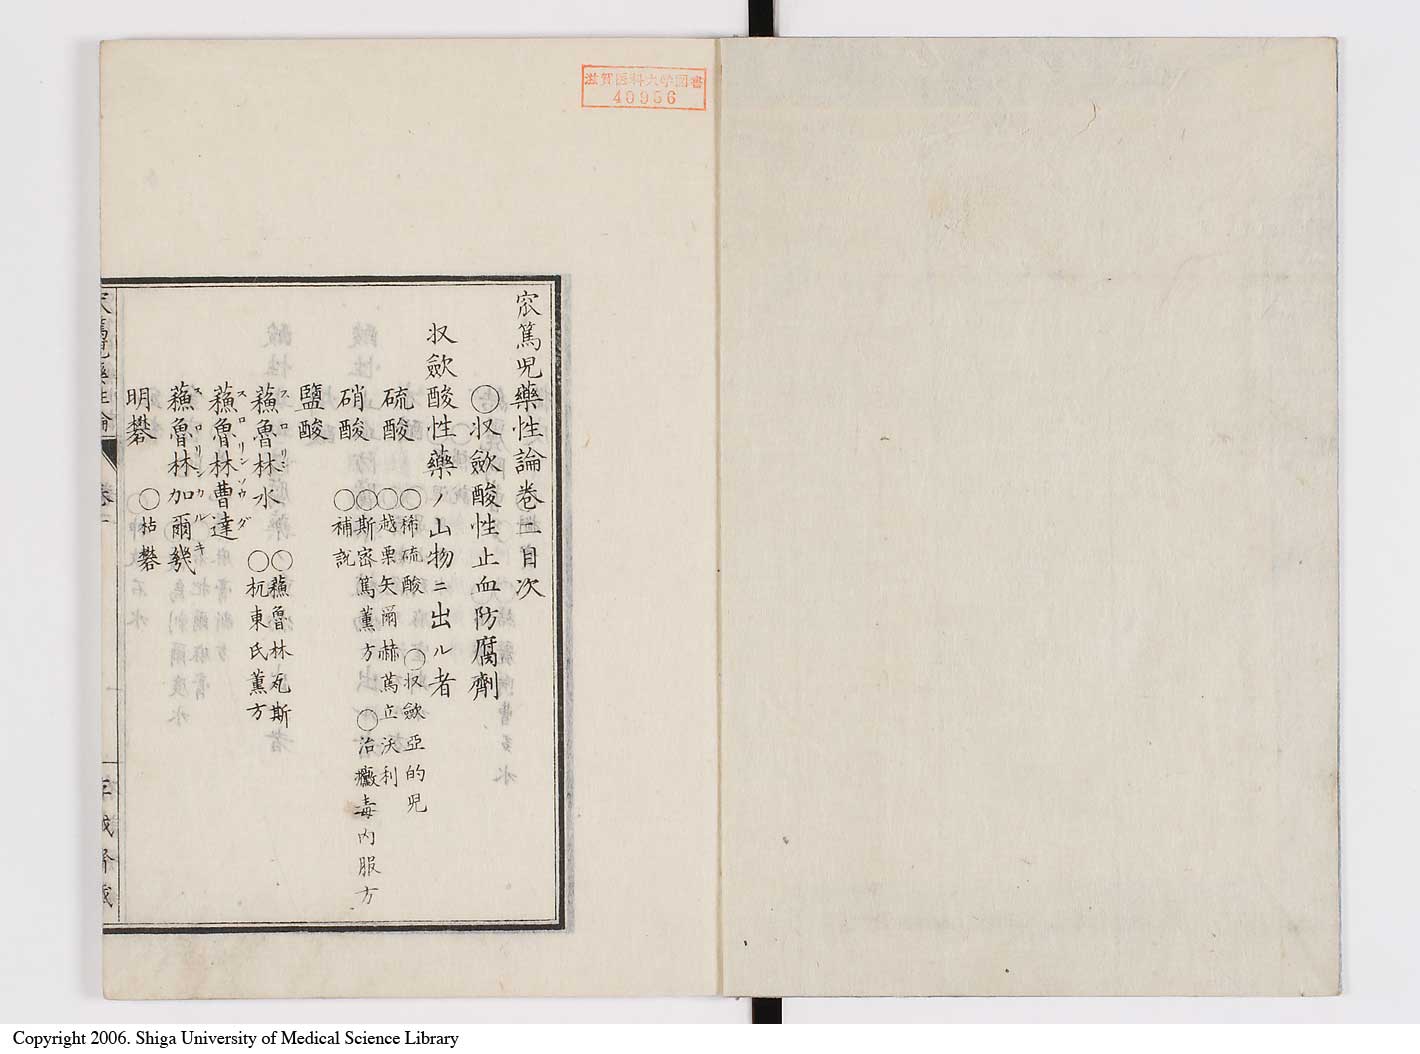 滋賀医科大学図書
40956
宻篤児藥性論卷二目次
〇収斂酸性止血防腐劑
収斂酸性藥ノ山物ニ出ル者
硫酸
〇稀硫酸
〇収斂亞的児
〇越栗矢爾赫蔿立沃利
硝酸
〇斯密篤薰方
〇治黴毒内服方
〇補説
鹽酸
蘓魯林水
スロリン
〇蘓魯林瓦斯
〇杭東氏薰方
蘓魯林曹達
スロリンソウダ
蘓魯林加爾幾
スロリンカルキ
明礬
〇枯礬
Copyright 2006. Shiga University of Medical Science Library